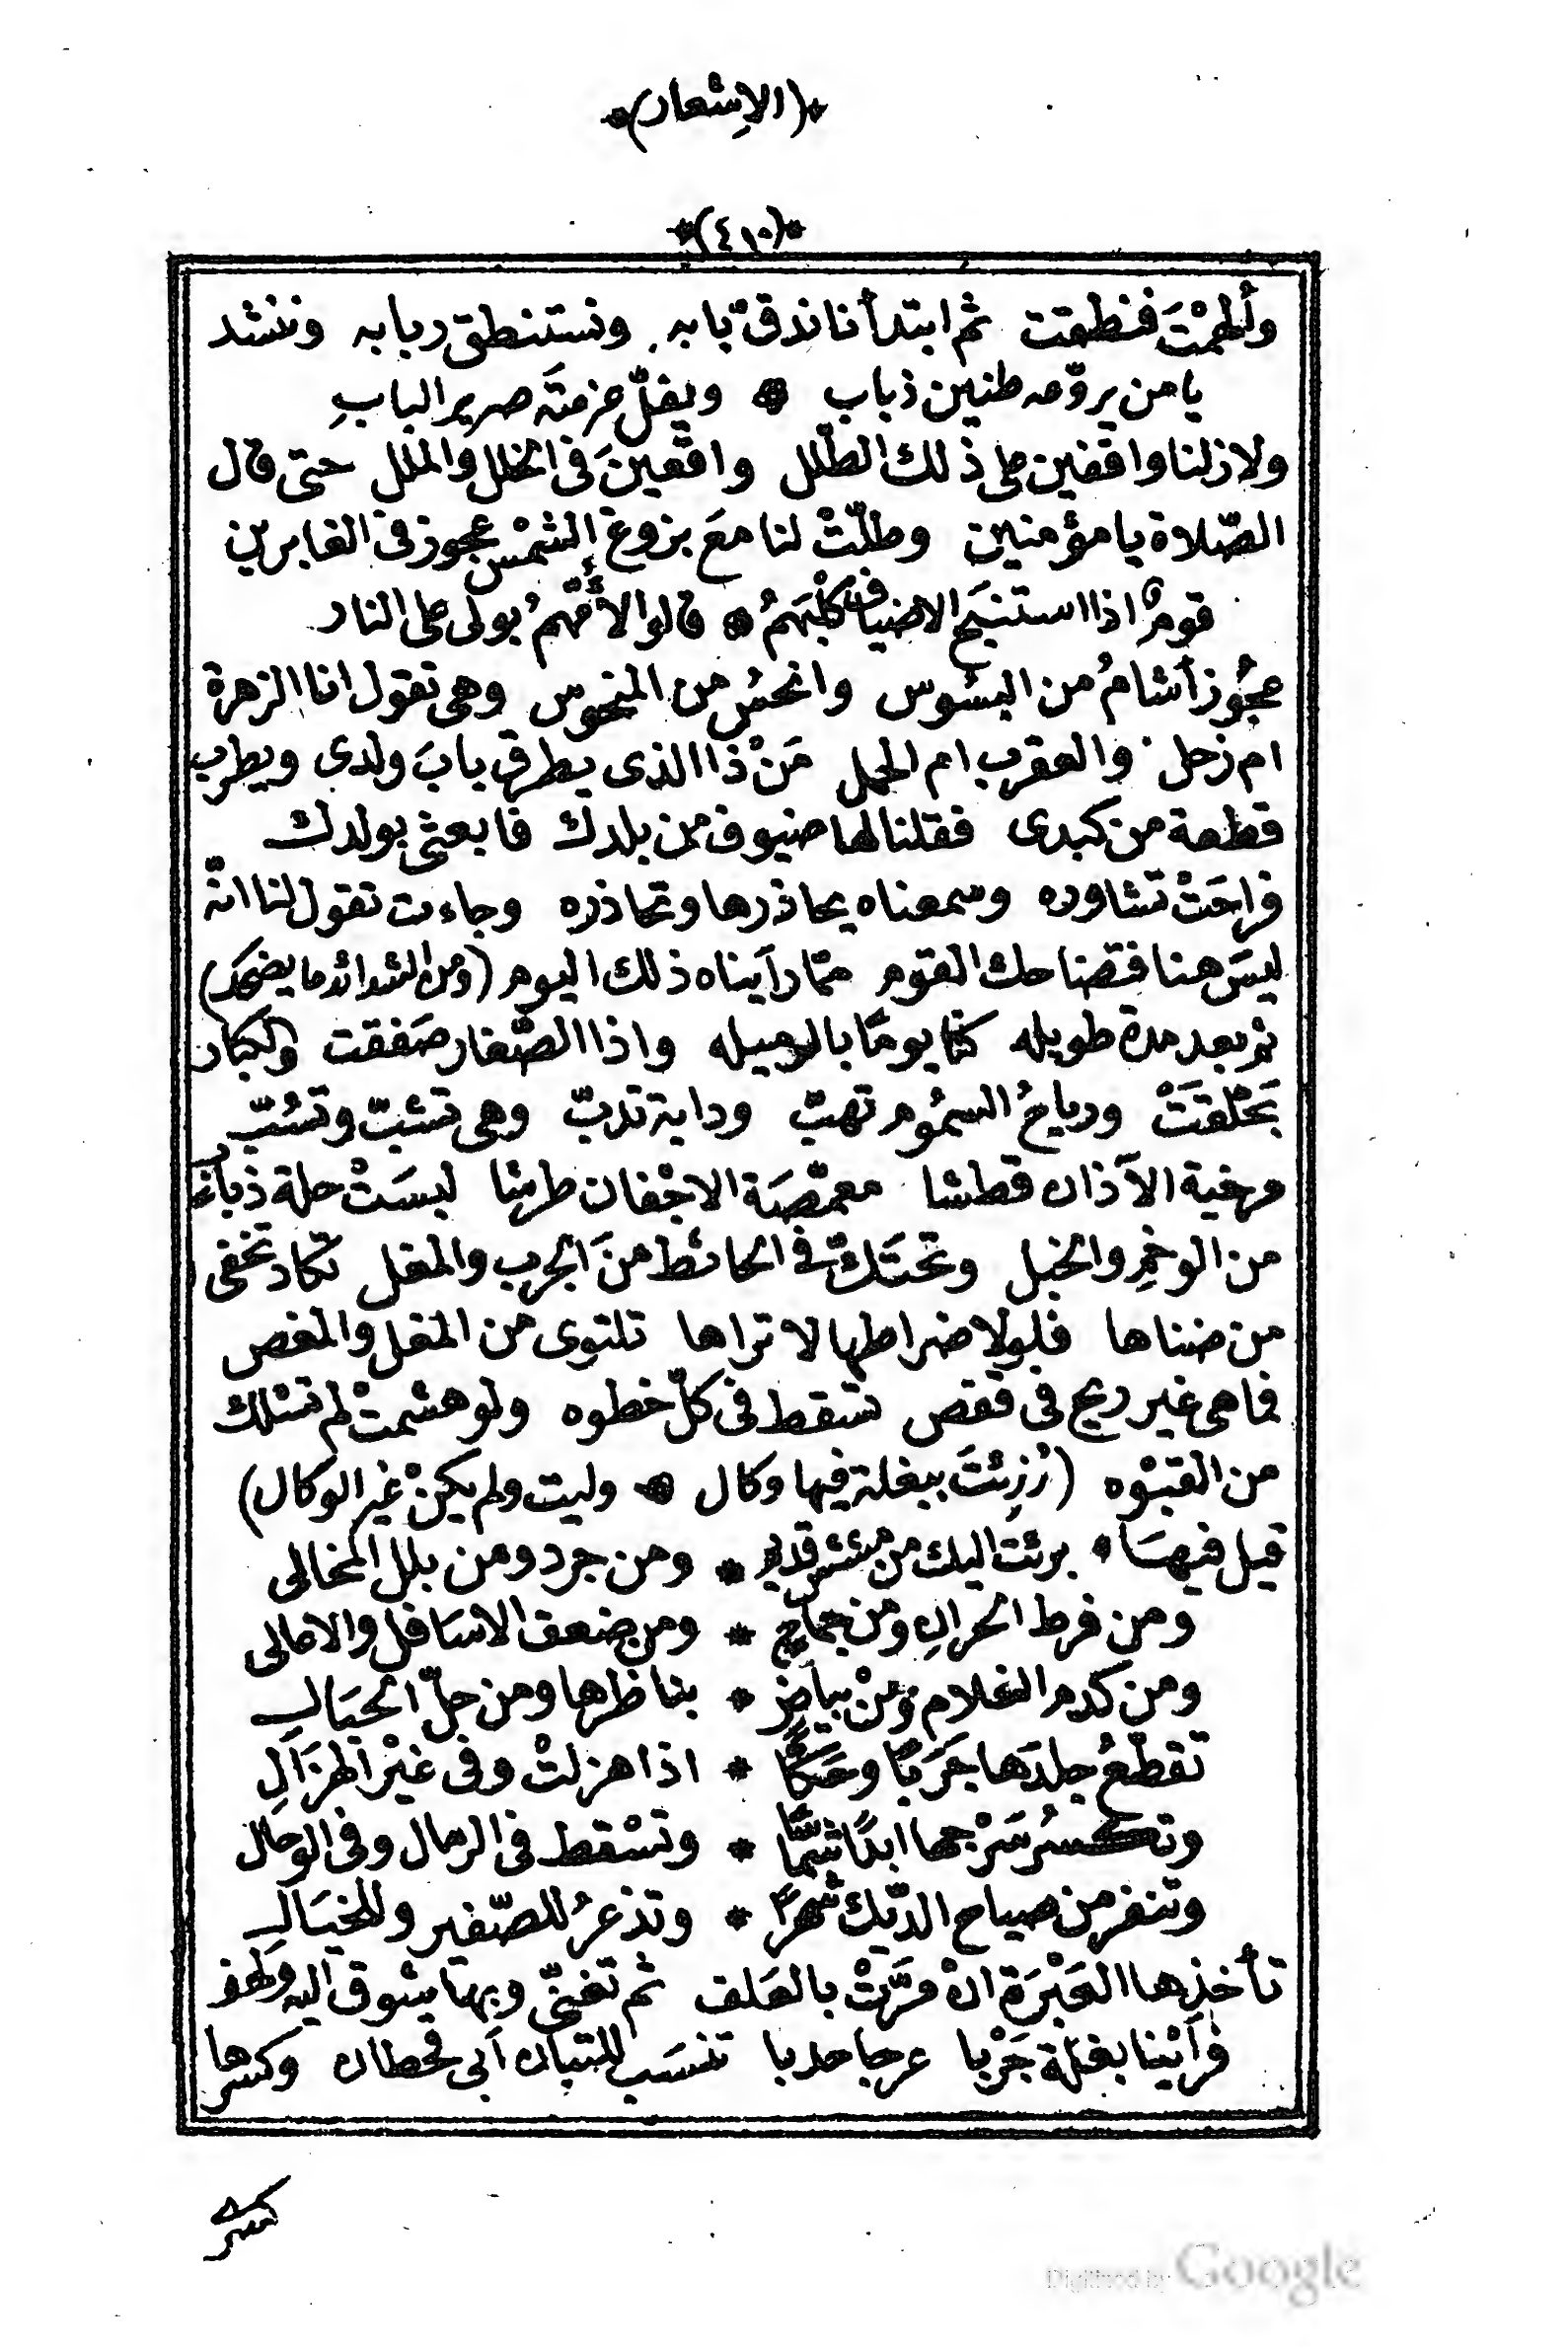 *(الاِشعار)*
*(٤١٠)*
وأُلهِمْتَ فنطقت ثم ابتدأنا ندقّ بابه ونستنطق ربابه وننشد
يا من يروّعه طنين ذباب * ويفلّ عزمتَه صرير البابِ
ولا زلنا واقفين على ذلك الطّلل واقعينَ في الخلل والملل حتى قال
الصّلاة يا مؤمنين وطلّتْ لنا معَ بزوغ الشمْس عجوز في الغابرين
قومٌ اذا استنبَح الاضيافُ كلْبَهمُ * قالوا لاُمّهمُ بولى على النار
عجُوز أشامُ من البسُوس وانحسُ من المنحوس وهى تقول انا الزهرة
ام زحل والعقرب ام الحمل مَنْ ذا الذى يطرق بابَ ولدى ويطرب
قطعة من كبدى فقلنا لها ضيوف من بلدك فابعثى بولدك
فراحَتْ تشاوره وسمعناه يحاذرها وتحاذره وجاءت تقول لنا انّه
ليسَ هنا فتضاحك القوم ممّا رأيناه ذلك اليوم (ومن الشدائد ما يضحك)
ثم بعد مدة طويله كنّا يومًا بالرميله واذا الصّغار صَفقت والكبار
بَحْلَقَتْ ورياحُ السمُوم تهبّ ودابة تدبّ وهى تشبّ وتسُبّ
مرخية الآذان قطشا مغمّصَة الاجْفان طرشا لبسَتْ حلة ذبابة
من الوخم والخبل وتحتَكّ في الحائط منَ الجرب والمغل تكاد تخفى
من ضناها فلولا ضراطها لا تراها تلتوى من المغل والمغص
فما هى غير ريح فى قفص تسقط فى كلّ خطوه ولو هشمتْ لم تسْلك
من القبْوه (رُزِئتَ ببغلة فيها وكال * وليت ولم يكنْ غير الوكال)
قيل فيهَا * برئت اليك من مشش قديم * ومن جرد ومن بلل المخالى
ومن فرط الحرانِ ومن جماحٍ * ومن ضعف الاسَافل والاعالى
ومن كدم الغلام ومنْ بياضٍ * بناظرها ومن حلّ الحبَالِ
تقطّعُ جلدَها جَرَبًا وحَكًّا * اذا هزلتْ وفى غيْر الهزَالِ
وتكسُر سَرْجها ابدًا شمَّاسًا * وتسْقط فى الرمال وفى الوحال
وتنفر من صياح الدّيك شهرًا * وتذعرُ للصّفير وللخيَالِ
تأخذها العَبْرَة انْ مَرَّتْ بالعَلف ثم تغنّى وبها شوق اليه ولهف
فرأيْنا بغلة جَرْبا عرجا حدبا تنسَب للتبان أبى قحطان وكسرها
كسرى
Digitized by Google